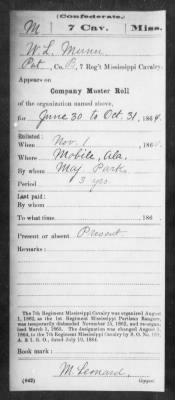 (Confederate.)
M 7 Cav. Miss.
W. L. Munn
Pvt, Co. B, 7 Reg't Mississippi Cavalry.
Appears on
Company Muster Roll
of the organization named above,
for June 30 to Oct. 31, 1864.
Enlisted:
When Nov. 1 186
Where Mobile, Ala.
By whom Maj. Park
Period 3 yrs.
Last paid:
By whom
To what time 186
Present or absent Present
Remarks:
The 7th Regiment Mississippi Cavalry was organized August
1, 1862, as the 1st Regiment Mississippi Partisan Rangers,
was temporarily disbanded November 15, 1862, and re-organ-
ized March 1, 1863. The designation was changed August
1864, to the 7th Regiment Cavalry by S. O. No.
A. & I. G. O., dated July 19, 1864.
Book mark:
M. Leonard
(642) Copyist.